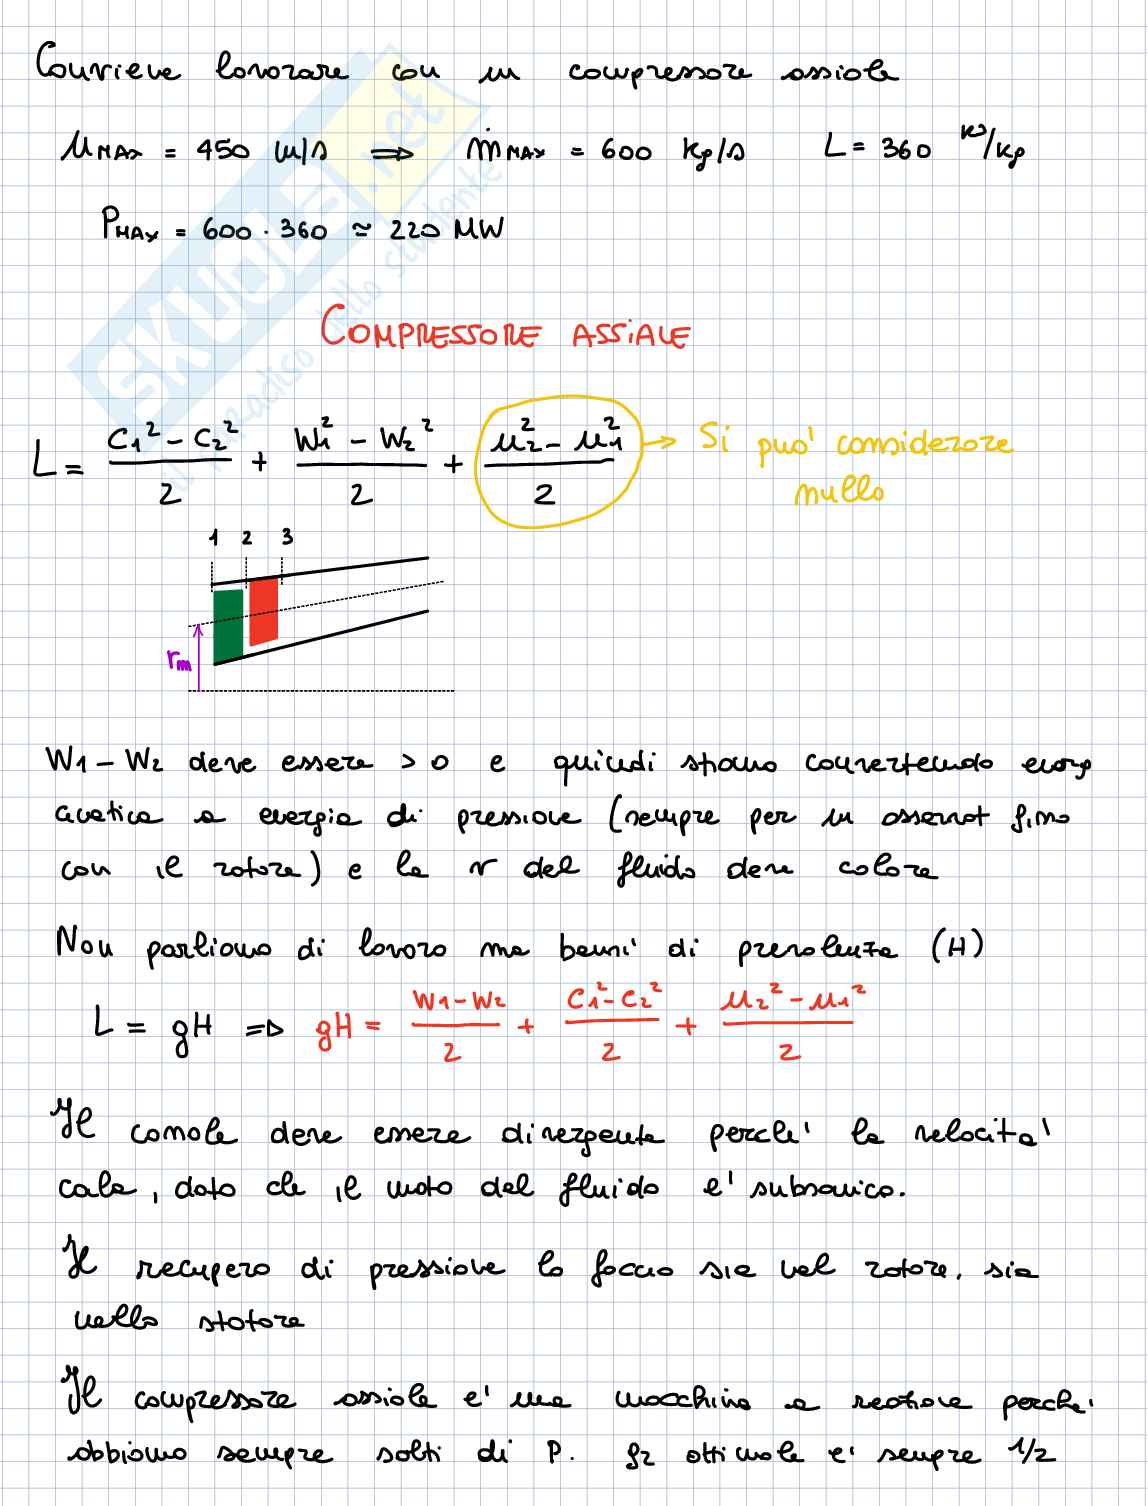 Conviene lavorare con un compressore assiale
u MAX = 450 m/s ⇒ ṁ MAX = 600 kg/s L = 360 kJ/kg
P MAX = 600 · 360 ≃ 220 MW
COMPRESSORE ASSIALE
L = (c1² - c2²)/2 + (w1² - w2²)/2 + (u2² - u1²)/2 → Si può considerare
nullo
1 2 3
rm
w1 - w2 deve essere > 0 e quindi stiamo convertendo energ
cinetica a energia di pressione (sempre per un osservat fino
con il rotore) e la v del fluido deve calare
Non parliamo di lavoro ma bensì di prevalenza (H)
L = gH ⇒ gH = (w1 - w2)/2 + (c1² - c2²)/2 + (u2² - u1²)/2
Il canale deve essere divergente perchè la velocità
cala, dato che il moto del fluido è subsonico.
Il recupero di pressione lo faccio sia nel rotore, sia
nello statore
Il compressore assiale è una macchina a reazione perchè
abbiamo sempre salti di P. ottimale è sempre 1/2
SKUOLA.net
paradiso dello studente